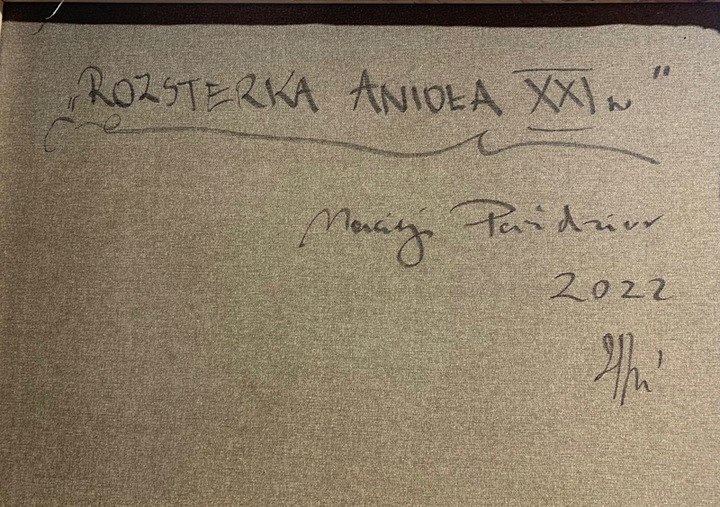 „ROZSTERKA ANIOŁA XXI w”
Maciej Paździor
2022